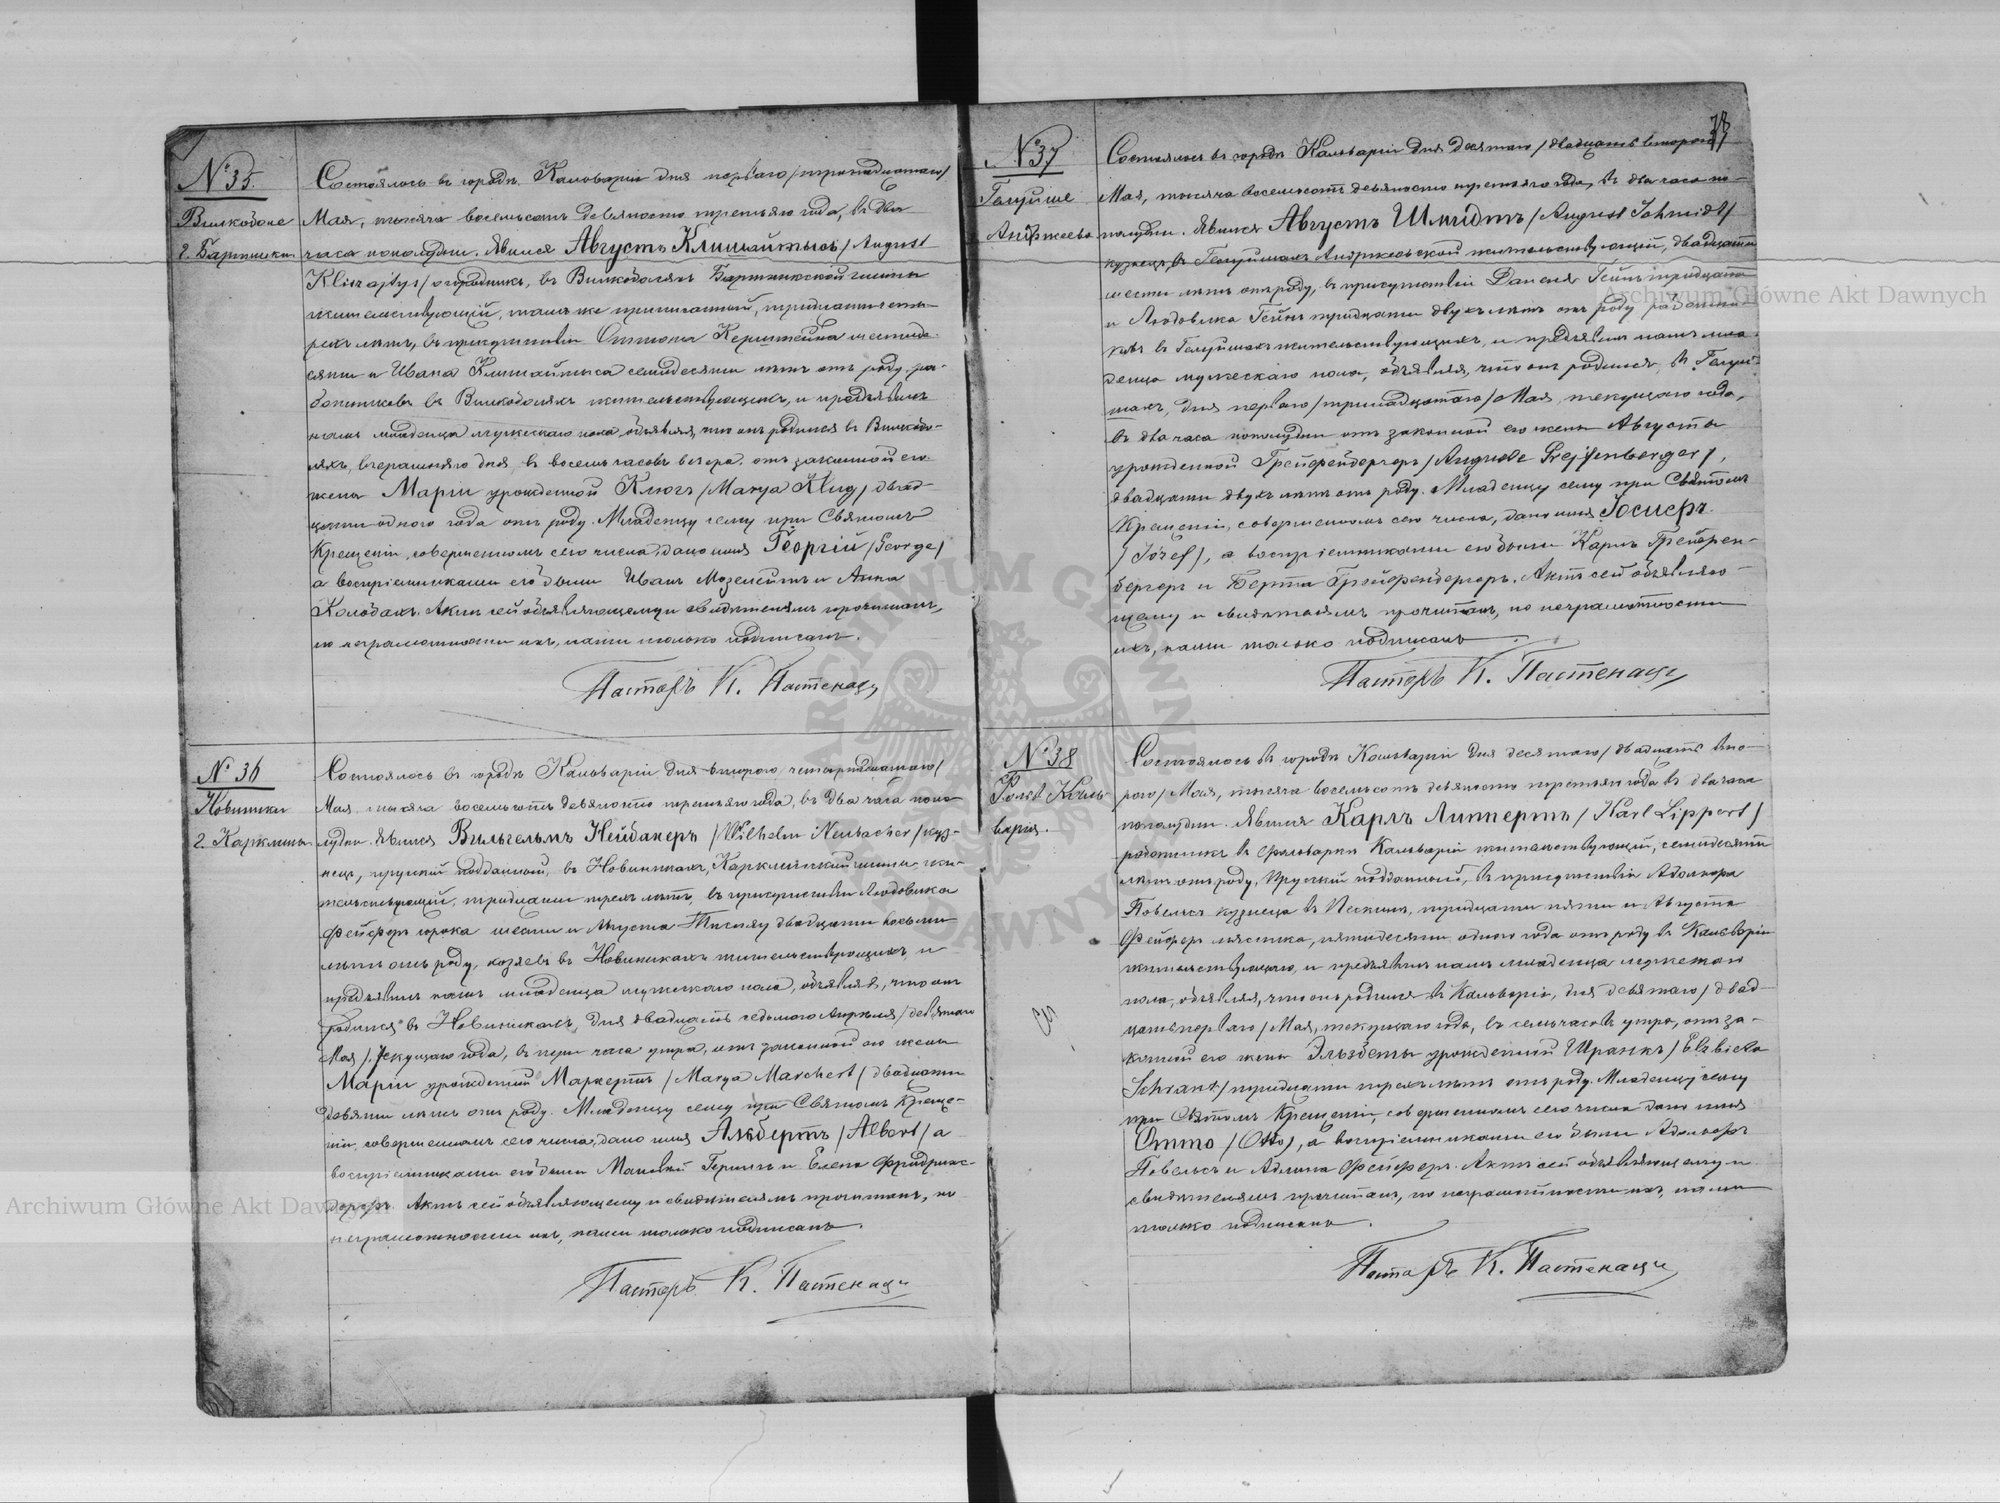 № 35.
Вилкоболе
г. Бартники
Состоялось въ городѣ Кальваріи дня перваго /тринадцатаго/
Мая, тысяча восемьсотъ девяносто третьяго года, въ два
часа пополудни. Явился Августъ Клишайтысъ /August
Kliszajtys/ огородникъ, въ Вилкоболяхъ Бартникской гмины
жительствующій, тамъ же приписанный, тридцати четы-
рехъ лѣтъ, въ присутствіи Оттона Керштейна шестиде-
сяти и Ивана Клишайтыса семидесяти лѣтъ отъ роду, ра-
ботниковъ въ Вилкоболяхъ жительствующихъ, и предъявилъ
намъ младенца мужескаго пола, объявляя, что онъ родился въ Вилкобо-
ляхъ, вчерашняго дня, въ восемь часовъ вечера, отъ законной его
жены Маріи урожденной Клюгъ /Marya Klug/ двад-
цати одного года отъ роду. Младенцу сему при Святомъ
Крещеніи, совершенномъ сего числа, дано имя Георгій /George/
а воспріемниками его были Иванъ Мозелейтъ и Анна
Колобакъ. Актъ сей объявляющему и свидѣтелямъ прочитанъ,
по неграмотности ихъ, нами только подписанъ.
Пасторъ К. Пастенаци
№ 36
Новиники
г. Карклины
Состоялось въ городѣ Кальваріи дня втораго /четырнадцатаго/
Мая тысяча восемьсотъ девяносто третьяго года, въ два часа попо-
лудни. Явился Вильгельмъ Нейбахеръ /Wilhelm Neubacher/ куз-
нецъ, прусскій подданный, въ Новиникахъ, Карклинской гмины жи-
тельствующій, тридцати трехъ лѣтъ, въ присутствіи Людовика
Фейферъ сорока шести и Августа двадцати восьми
лѣтъ отъ роду, хозяевъ въ Новиникахъ жительствующихъ, и
предъявилъ намъ младенца мужескаго пола, объявляя, что онъ
родился въ Новиникахъ, дня двадцать седьмого Апрѣля /девятаго
Мая/ текущаго года, въ часа утра, отъ законной его жены
Маріи урожденной Маркертъ /Marya Marchert/ двадцати
девяти лѣтъ отъ роду. Младенцу сему при Святомъ Креще-
ніи, совершенномъ сего числа, дано имя Альбертъ /Albert/ а
воспріемниками его были Герингъ и Елена Фридрихс-
дорфъ. Актъ сей объявляющему и свидѣтелямъ прочитанъ, по
неграмотности ихъ, нами только подписанъ.
Пасторъ К. Пастенаци
№ 37
Гелуйше
Андржеево
Состоялось въ городѣ Кальваріи дня десятаго /двадцать втораго/
Мая, тысяча восемьсотъ девяносто третьяго года, въ два часа по-
полудни. Явился Августъ Шмидтъ /August Schmidt/
кузнецъ, въ Гелуйшахъ Андржеевской жительствующій, двадцати
шести лѣтъ отъ роду, въ присутствіи Даніеля Гейнъ тридцати
и Людовика Гейнъ тридцати двухъ лѣтъ отъ роду работни-
ковъ въ Гелуйшахъ жительствующихъ, и предъявилъ намъ мла-
денца мужескаго пола, объявляя, что онъ родился въ Гелуй-
шахъ, дня перваго /тринадцатаго/ Мая, текущаго года,
въ два часа пополудни отъ законной его жены Августы
урожденной Грейфенбергеръ /Auguste Grejfenberger/,
двадцати двухъ лѣтъ отъ роду. Младенцу сему при Святомъ
Крещеніи, совершенномъ сего числа, дано имя Іосифъ
/Józef/, а воспріемниками его были Карлъ Грейфен-
бергеръ и Берта Грейфенбергеръ. Актъ сей объявляю-
щему и свидѣтелямъ прочитанъ, по неграмотности
ихъ, нами только подписанъ
Пасторъ К. Пастенаци
№ 38
Фольв. Каль-
варія.
Состоялось въ городѣ Кальваріи дня десятаго /двадцать вто-
рого/ Мая, тысяча восемьсотъ девяносто третьяго года въ два часа
пополудни. Явился Карлъ Липпертъ /Karl Lippert/
работникъ въ фольваркѣ Кальварія жительствующій, семидесяти
лѣтъ отъ роду, Прусскій подданный, въ присутствіи Адольфа
Повельсъ кузнеца въ тридцати пяти и Августа
Фейферъ мясника, пятидесяти одного года отъ роду въ Кальваріи
жительствующаго, и предъявилъ намъ младенца мужескаго
пола, объявляя, что онъ родился въ Кальваріи, дня девятаго /двад-
цать перваго/ Мая, текущаго года, въ семь часовъ утра, отъ за-
конной его жены Эльзбеты урожденной Шранкъ /Elzbieta
Schrank/ тридцати трехъ лѣтъ отъ роду. Младенцу сему
при Святомъ Крещеніи, совершенномъ сего числа дано имя
Отто /Otto/, а воспріемниками его были Адольфъ
Повельсъ и Адлина Фейферъ. Актъ сей объявляющему и
свидѣтелямъ прочитанъ, по неграмотности ихъ, нами
только подписанъ.
Пасторъ К. Пастенаци
Archiwum Główne Akt Dawnych
Archiwum Główne Akt Dawnych
ARCHIWUM GŁÓWNE AKT DAWNYCH